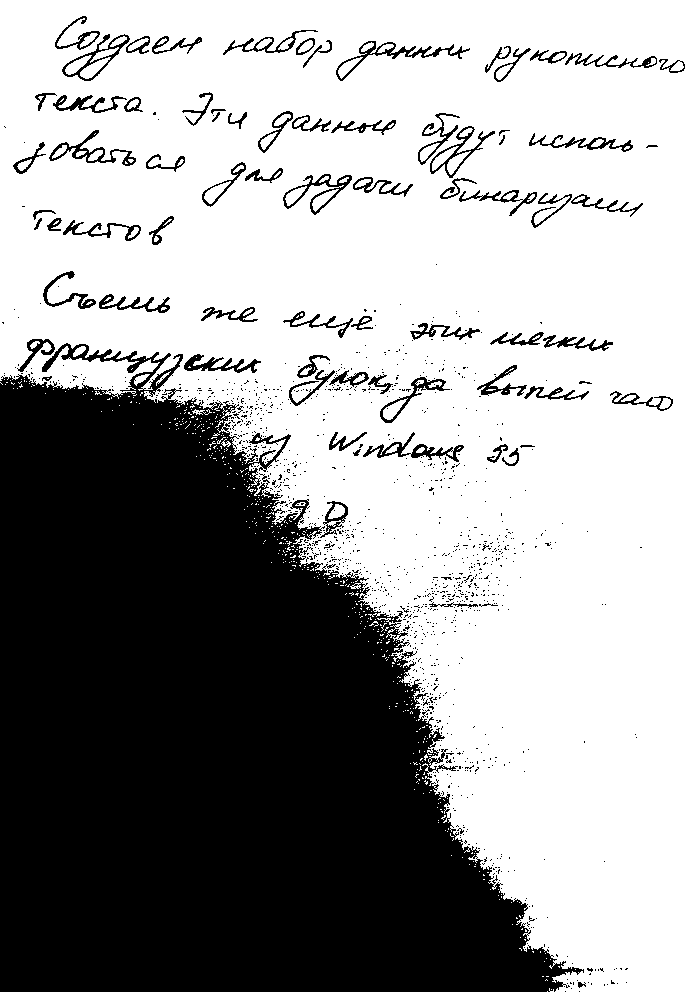 Создаем набор данных рукописного
текста. Эти данные будут исполь-
зоваться для задачи бинаризации
текстов
Съешь же ещё этих мягких
французских булок, да выпей чаю
из Windows 95